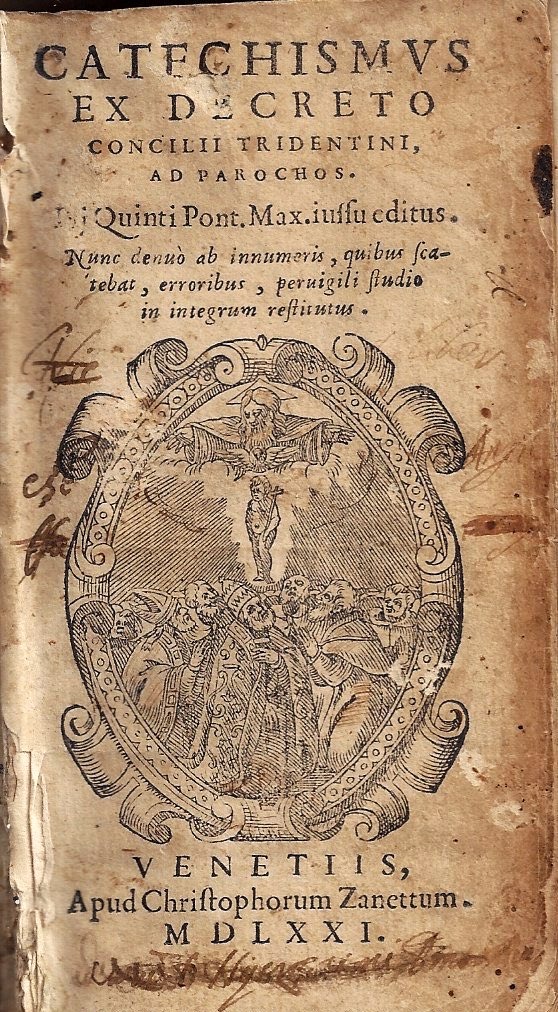 CATECHISMVS
EX DECRETO
CONCILII TRIDENTINI,
AD PAROCHOS.
Quinti Pont. Max. iuſſu editus.
Nunc denuò ab innumeris, quibus ſca-
tebat, erroribus, peruigili ſtudio
in integrum reſtitutus.
VENETIIS,
Apud Chriſtophorum Zanettum.
MDLXXI.